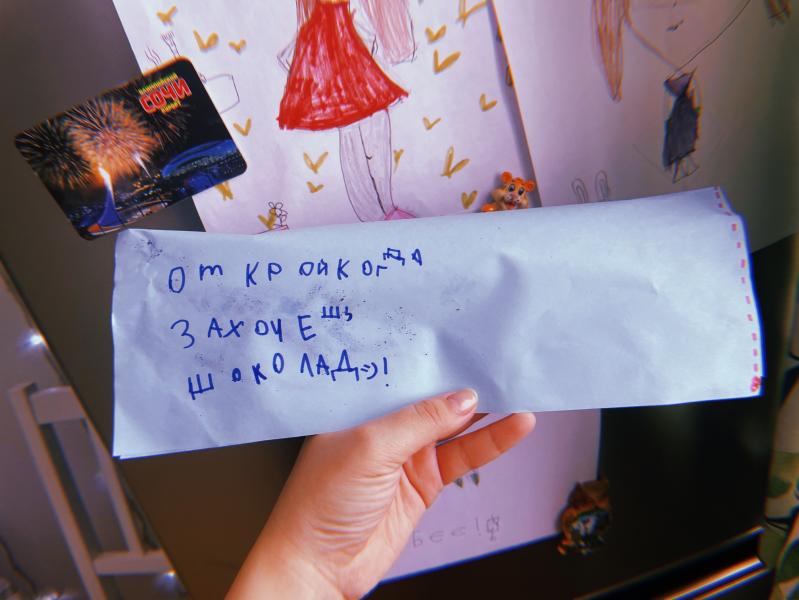 СОЧИ
ОткройкогДА
ЗАХОЧЕШЬ
ШОКОЛАД=)!